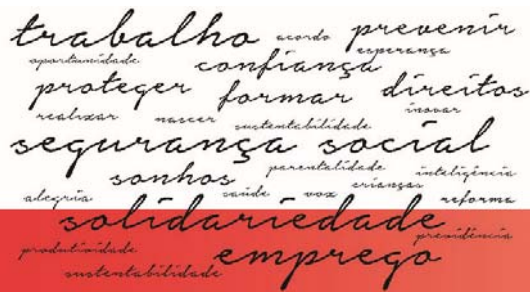 trabalho acordo prevenir
oportunidade confiança esperança
proteger formar direitos
realizar nascer sustentabilidade inovar
segurança social
sonhos parentalidade inteligência
alegria saúde voz crianças reforma
solidariedade previdência
produtividade emprego
sustentabilidade